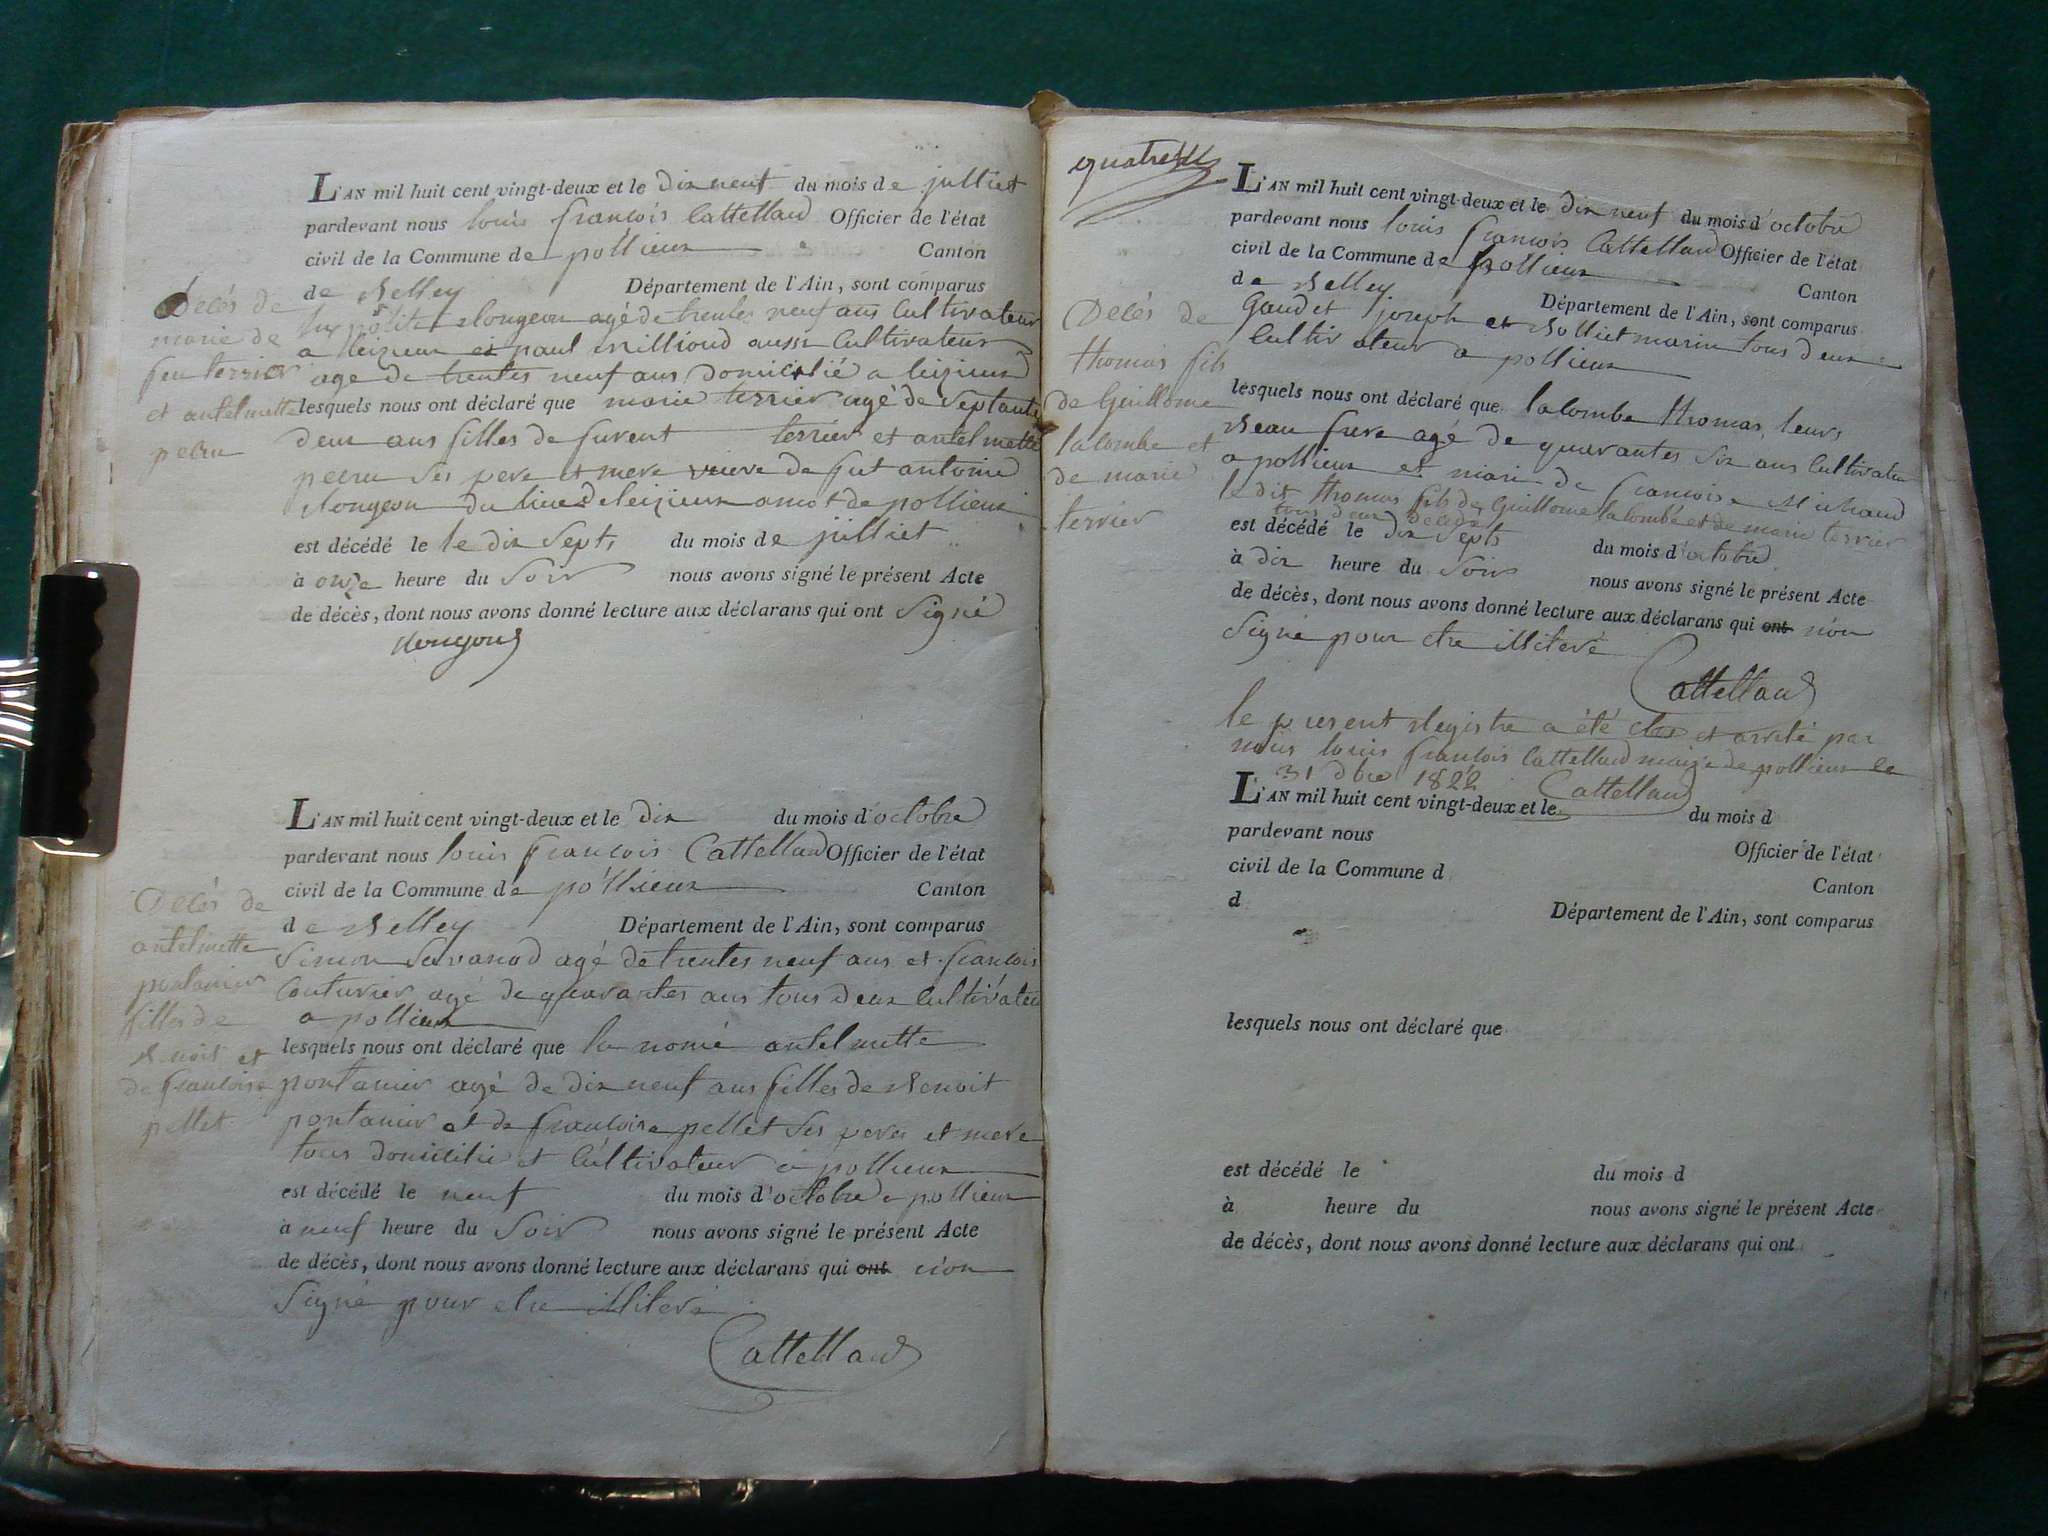 L'AN mil huit cent vingt-deux et le dix neuf du mois de julliet
pardevant nous louis françois Cattelland Officier de l'état
civil de la Commune de pollieux Canton
de Belley Département de l'Ain, sont comparus
agé de trentes neuf ans Cultivateur
a et paul millioud aussi Cultivateur
agé de trentes neuf ans domicilié a
lesquels nous ont déclaré que marie terrier agé de septante
deux ans filles de furent terrier et antelmette
pecru ses pere et mere veuve de fut antoine
du lieu de de pollieux
est décédé le le dix sept du mois de julliet
à onze heure du soir nous avons signé le présent Acte
de décès, dont nous avons donné lecture aux déclarans qui ont signé
Décés de
marie de
feu terrier
et antelmette
pecru
L'AN mil huit cent vingt-deux et le dix du mois d'octobre
pardevant nous louis françois Cattelland Officier de l'état
civil de la Commune de pollieux Canton
de Belley Département de l'Ain, sont comparus
Simon Savanod agé de trentes neuf ans et françois
Couturier agé de quarantes ans tous deux Cultivateu
a pollieux
lesquels nous ont déclaré que la nomé antelmette
pontanier agé de dix neuf ans filles de Benoit
pontanier et de françoise pellet ses peres et mere
tous domicilié et Cultivateur a pollieux
est décédé le neuf du mois d'octobre a pollieux
à neuf heure du soir nous avons signé le présent Acte
de décès, dont nous avons donné lecture aux déclarans qui ont non
signé pour etre illiteré
Cattelland
Décés de
antelmette
pontanier
filles de
Benoit et
de françoise
pellet
quatre
L'AN mil huit cent vingt-deux et le dix neuf du mois d'octobre
pardevant nous louis françois Cattelland Officier de l'état
civil de la Commune de pollieux Canton
de Belley Département de l'Ain, sont comparus
Gaudet joseph et Bolliet marin tous deux
Cultivateur a pollieux
lesquels nous ont déclaré que lalombe thomas leurs
Beau frere agé de quarantes six ans Cultivateu
a pollieux et mari de françoise Michaud
le dit thomas fils de Guillome lalombe et de marie terrier
tous deux décédés
est décédé le dix sept du mois d'octobre
à dix heure du soir nous avons signé le présent Acte
de décès, dont nous avons donné lecture aux déclarans qui ont non
signé pour etre illiteré
Cattelland
Décés de
thomas fils
de Guillome
lalombe et
de marie
terrier
le present Registre a été clos et arreté par
nous louis françois Cattelland maire de pollieux le
31 Xbre 1822 Cattelland
L'AN mil huit cent vingt-deux et le du mois d
pardevant nous Officier de l'état
civil de la Commune d Canton
d Département de l'Ain, sont comparus
lesquels nous ont déclaré que
est décédé le du mois d
à heure du nous avons signé le présent Acte
de décès, dont nous avons donné lecture aux déclarans qui ont